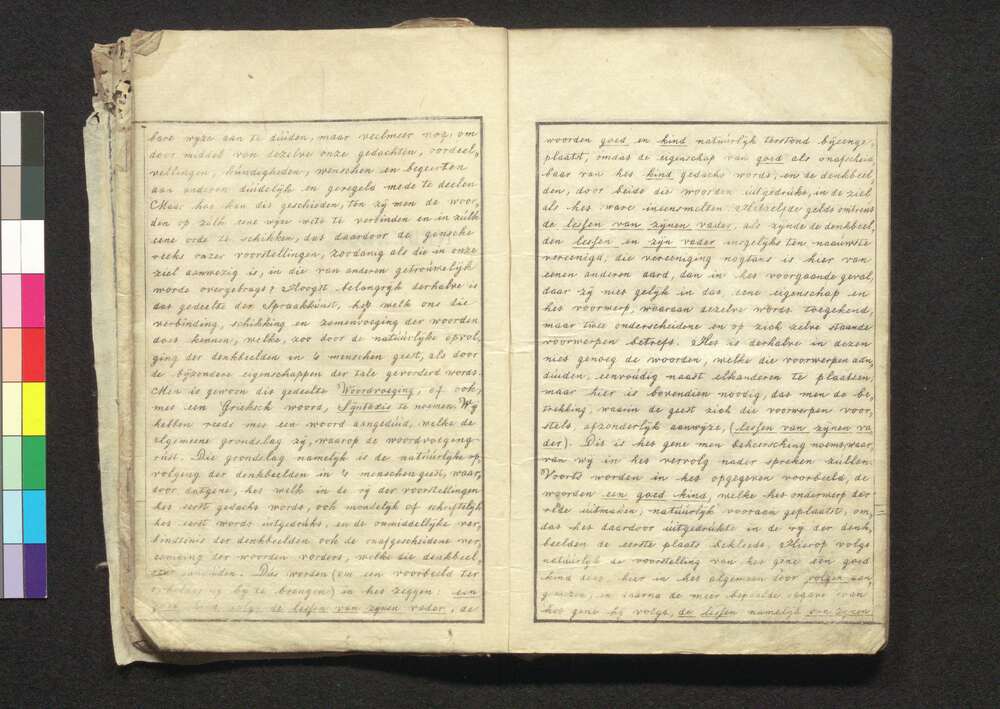 bare wyze aan te duiden, maar veelmeer nog, om
door middel van dezelve onze gedachten, oordeel,
vellingen, kundigheden, wenschen en begeerten
aan anderen duidelijk en geregeld mede te deelen
Maar hoe kan dit geschieden, ten zij men de woor,
den op zulk eene wyze wete te verbinden en in zulk
eene orde te schikken, dat daardoor de gansche
reeks onzer voorstellingen, zoodanig als die in onze
ziel aanwezig is, in die van anderen getrouwelijk
worde overgebragt? Hoogst belangrijk derhalve is
dat gedeelte der Spraakkunst, het welk ons die
verbinding, schikking en zamenvoeging der woorden
doet kennen, welke, zoo door de natuurlyke opvol,
ging der denkbeelden in 's menschen geest, als door
de byzondere eigenschappen der tale gevorderd wordt.
Men is gewoon dit gedeelte Woordvoeging, of ook,
met een Grieksch woord, Syntaxis te noemen. Wy
hebben reeds met een woord aangeduid, welke de
algemeene grondslag zy, waarop de woordvoeging
rust. Die grondslag namelijk is de natuurlyke op,
volging der denkbeelden in 's menschen geest, waar,
door datgene, het welk in de ry der voorstellingen
het eerst gedacht wordt, ook mondelijk of schriftelyk
het eerst wordt uitgedrukt, en de onmiddellyke ver,
bindtenis der denkbeelden ook de onafgescheidene ver,
eeniging der woorden vordert, welke die denkbeel,
den aanduiden. Dus worden (om een voorbeeld ter
opheldering by te brengen) in het zeggen: een
goed kind volgt de lessen van zynen vader, de
woorden goed en kind natuurlijk terstond bijeenge,
plaatst, omdat de eigenschap van goed als onafscheid,
baar van het kind gedacht wordt, en de denkbeel
den, door beide die woorden uitgedrukt, in de ziel
als het ware ineensmelten. Hetzelfde geldt omtrent
de lessen van zynen vader, als zynde de denkbeel,
den lessen en zyn vader insgelyks ten naauwste
vereenigd; die vereeniging nogtans is hier van
eenen anderen aard, dan in het voorgaande geval,
daar zij niet gelijk in dat, eene eigenschap en
het voorwerp, waaraan dezelve wordt toegekend,
maar twee onderscheidene en op zich zelve staande
voorwerpen betreft. Het is derhalve in dezen
niet genoeg de woorden, welke die voorwerpen aan,
duiden, eenvoudig naast elkanderen te plaatsen,
maar hier is bovendien noodig, dat men de be,
trekking, waarin de geest zich die voorwerpen voor,
stelt, afzonderlyk aanwyze, (lessen van zynen va
der). Dit is het gene men beheersching noemt, waar,
van wy in het vervolg nader spreken zullen.
Voorts worden in het opgegeven voorbeeld, de
woorden een goed kind, welke het onderwerp der
rede uitmaken, natuurlyk vooraan geplaatst, om,
dat het daardoor uitgedrukte in de ry der denk,
beelden de eerste plaats bekleedt. Hierop volgt
natuurlyk de voorstelling van het gene een goed
kind doet, hier in het algemeen door volgen aan,
gewezen, en daarna de meer bepaalde opgave van
het gene hy volgt, de lessen namelyk van zynen